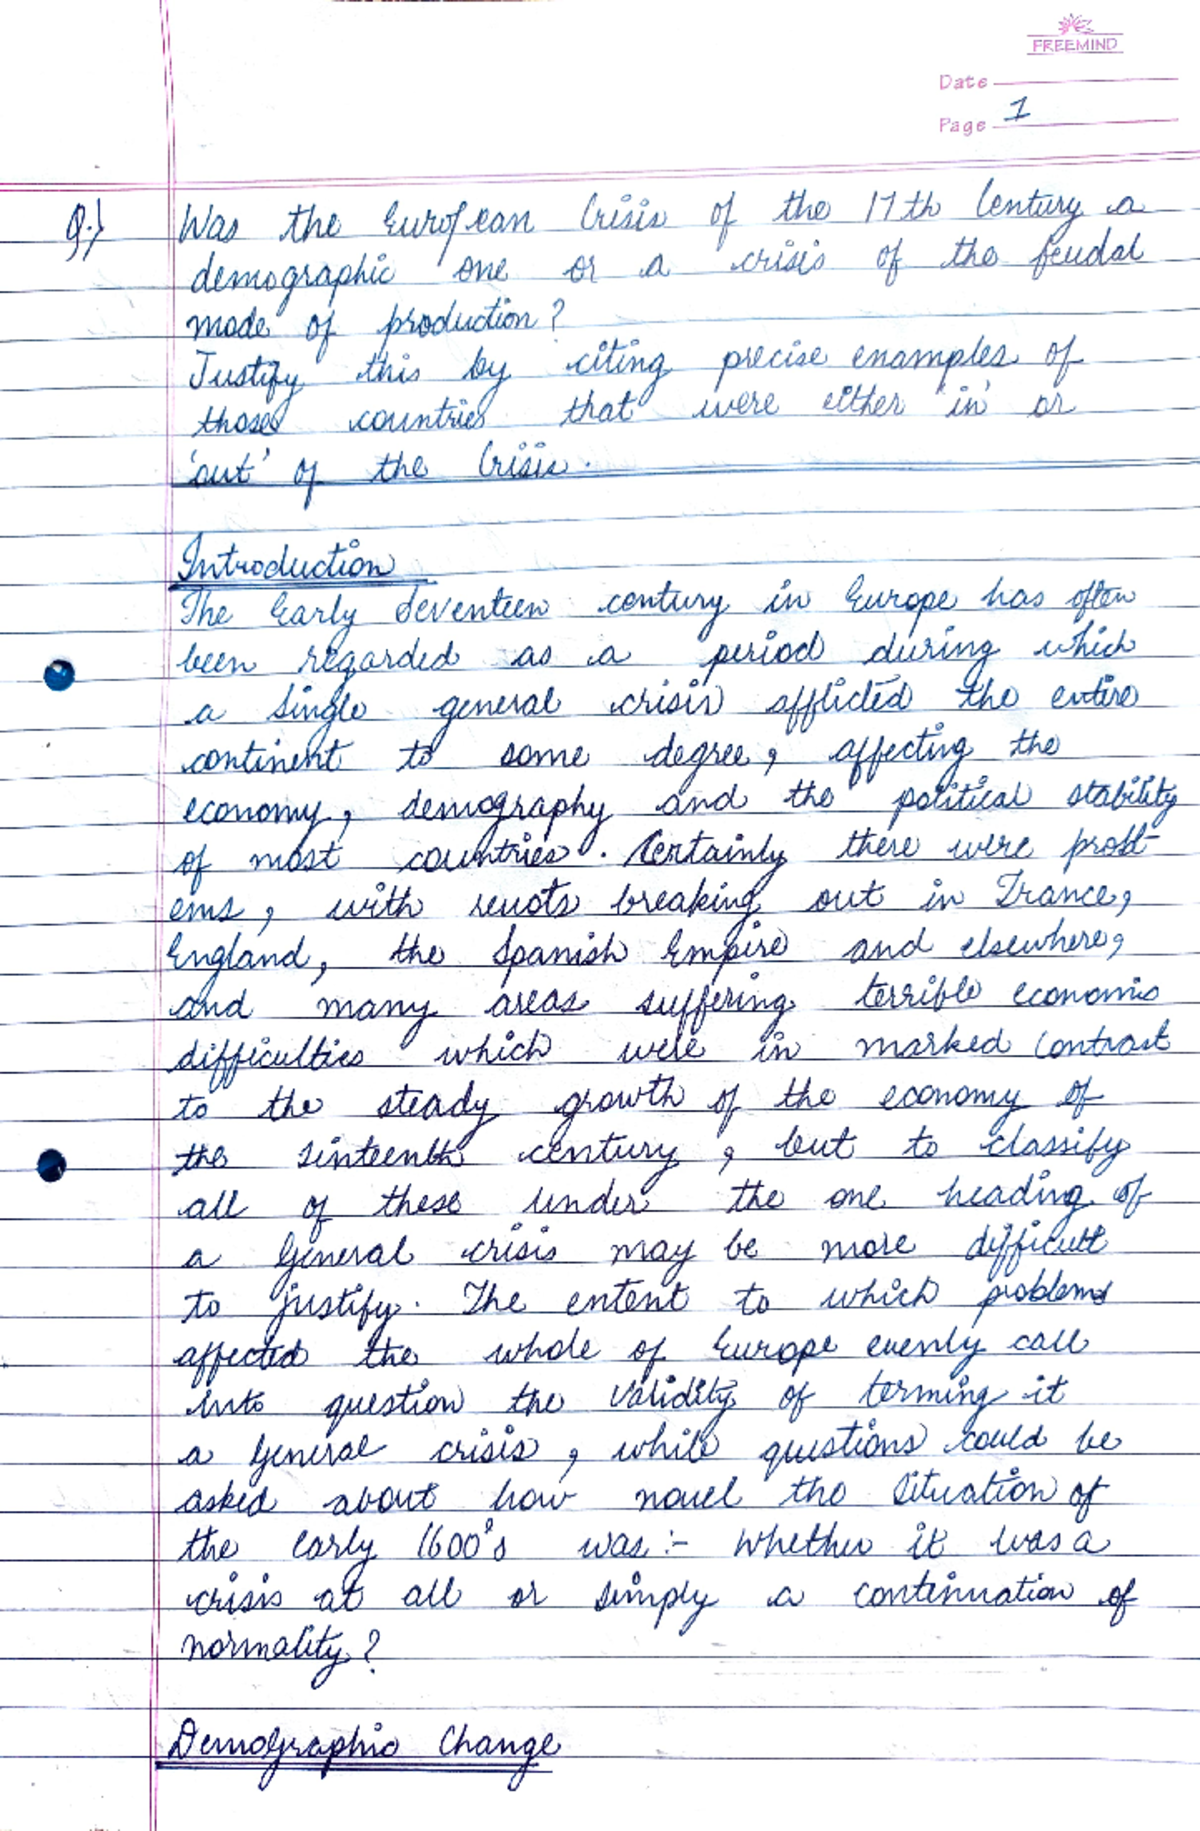 FREEMIND
Date
Page 1
Q.) Was the European Crisis of the 17th Century a
demographic one or a crisis of the feudal
mode of production?
Justify this by citing precise enamples of
those countries that were either 'in' or
'out' of the Crisis.
Introduction
The Early Seventeen century in Europe has often
been regarded as a period during which
a single general crisis afflicted the entire
continent to some degree, affecting the
economy, demography and the political stability
of most countries. Certainly there were probl-
ems, with revots breaking out in France,
England, the Spanish Empire and elsewhere,
and many areas suffering terrible economic
difficulties which were in marked contrast
to the steady growth of the economy of
the sinteenth century, but to classify
all of these under the one heading of
a General crisis may be more difficult
to justify. The entent to which problems
affected the whole of Europe evenly call
into question the validity of terming it
a General crisis, while questions could be
asked about how novel the situation of
the early 1600's was :- whether it was a
crisis at all or simply a continuation of
normality?
Demographic Change